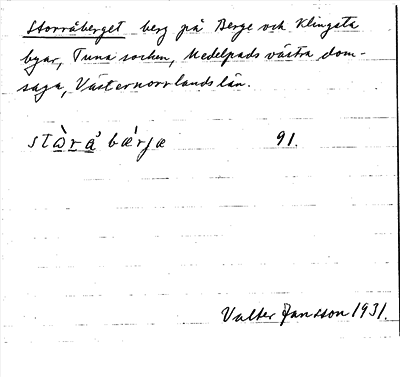 Storråberget berg på Berge och Klingsta
byar, Tuna socken, Medelpads västra dom-
saga, Västernorrlands län.
stὼrå' bæ'rjæ 91.
Valter Jansson 1931.